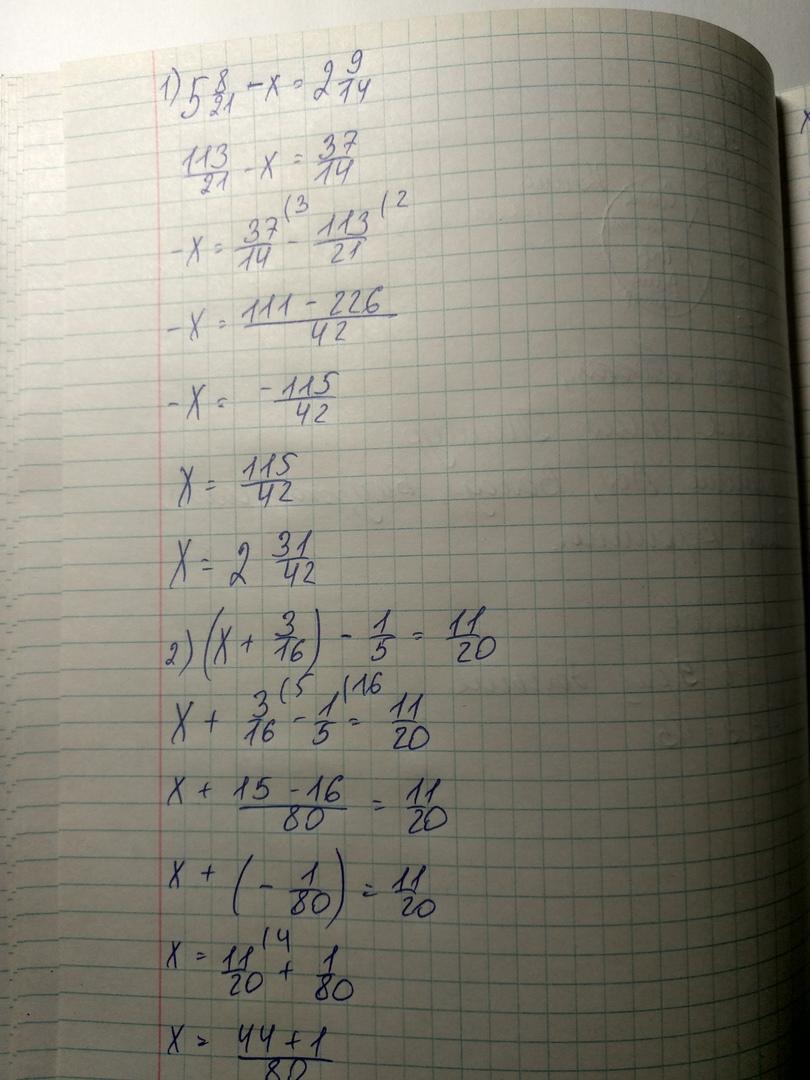 1) 5 8/21 - x = 2 9/14
113/21 - x = 37/14
-x = 37/14 (3 - 113/21 (2
-x = (111 - 226)/42
-x = -115/42
x = 115/42
x = 2 31/42
2) (x + 3/16) - 1/5 = 11/20
x + 3/16 (5 - 1/5 (16 = 11/20
x + (15 - 16)/80 = 11/20
x + (- 1/80) = 11/20
x = 11/20 (4 + 1/80
x = (44 + 1)/80